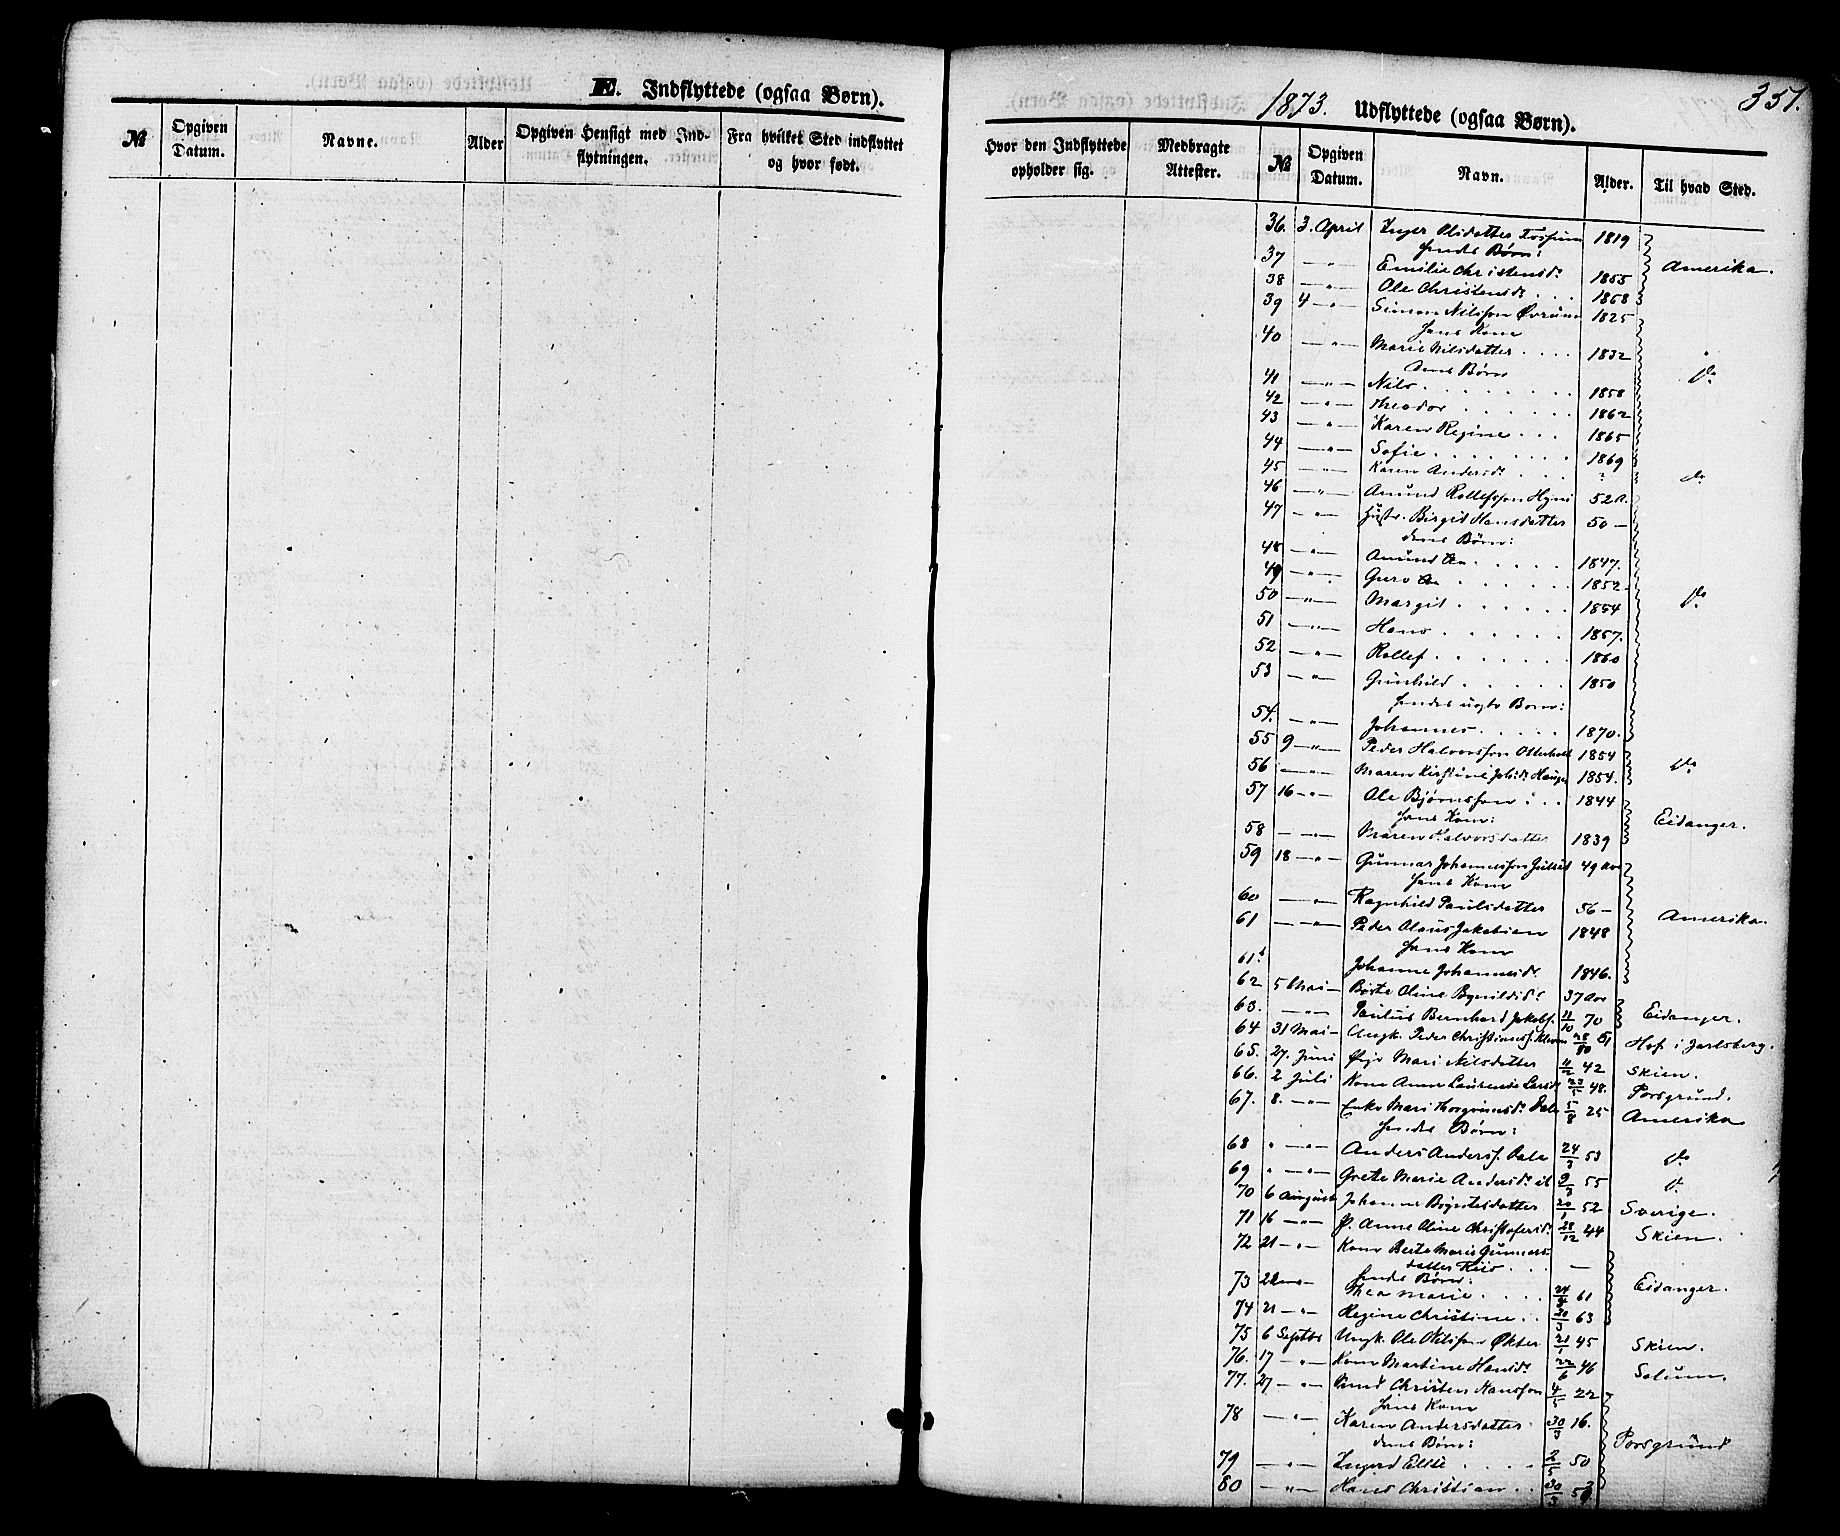 E. Indflyttede (ogsaa Børn).
№ Opgiven Datum. Navne. Alder Opgiven Hensigt med Indflytningen. Fra hvilket Sted indflyttet og hvor født.
1873. Udflyttede (ogsaa Børn). 351.
Hvor den Indflyttede opholder sig. Medbragte Attester. № Opgiven Datum. Navn. Alder. Til hvad Sted.
36. 3. April Inger Olsdatter Fossum 1819
hendes Børn:
37 — " — Emilie Christensd. 1855 Amerika.
38 — " — Ole Christensd. 1858
39 4 — " — Simon Nilssøn Øvrum 1825
hans Kone
40 — " — Marie Nilsdatter 1832
deres Børn do
41 — " — Nils 1858
42 — " — Theodor 1862
43 — " — Karen Regine 1865
44 — " — Sofie 1869
45 — " — Karen Andersd. ? do
46 — " — Amund Rollefssøn 52 A.
47 — " — Hustr. Birgit Hansdatter 50 —
deres Børn:
48 — " — Amund 1847.
49 — " — Guro 1852
50 — " — Margit 1854 do
51 — " — Hans 1857.
52 — " — Rollef 1860
53 — " — Gunhild 1850
hendes uægte Barn:
54. — " — Johannes 1870.
55 9 — " — Peder Halvorssøn Otterholt 1854
56 — " — Maren Kirstine Johsd. 1854. do
57 16 — " — Ole Bjørnssøn 1844
hans Kone: Eidanger.
58 — " — Maren Halvorsdatter 1839
59 18 — " — Gunnar Johannessøn 49 Aar
hans Kone
60 — " — Ragnhild Paulsdatter 56 —
61 — " — Peder Olaus Jakobsen 1848 Amerika.
hans Kone
61b Johanne Johannesd. 1846.
62 5 Mai — Oline 37 Aar
63. — " — Paulus Bernhard Jakobs. 11/10 70 Eidanger.
64 31 Mai — Ungk. Peder Christianss. 28/10 51 Hof i Jarlsberg.
65. 27. Juni Pige Mari Nilsdatter 11/2 42 Skien.
66. 2 Juli Kone Anne Laurende Larsd. 23/5 48. Porsgrund.
67. 8. — " — Enke Mari Thorgrimsd. Dale 5/8 25 Amerika
hendes Børn:
68 " — " — Anders Anderss. Dale 24/3 53 do
69 " — " — Grete Marie Andersd. 9/3 55 do
70 6 August Johanne 20/1 52 Sverige.
71 16 — " — P. Anne Oline Christofersd. 28/12 44 Skien.
72 21 — " — Kone Berte Marie Gunnarsdatter —
hendes Børn:
73 22 — " — Thea Marie 24/4 61 Eidanger.
74 21 — " — Regine Christine 31/3 63
75 6 Septbr Ungk. Ole Nilssøn Økter 21/1 45 Skien.
76. 17 — " — Kone Martine Hansd. 22/6 46 Solum.
77. 27 — " — Christen Hanssøn 4/5 22
hans Kone
78 — " — Karen Andersdatter 30/3 16.
deres Børn: Porsgrund
79 — " — Inger Elise 2/5 50
80 — " — Hans Christian 30/3